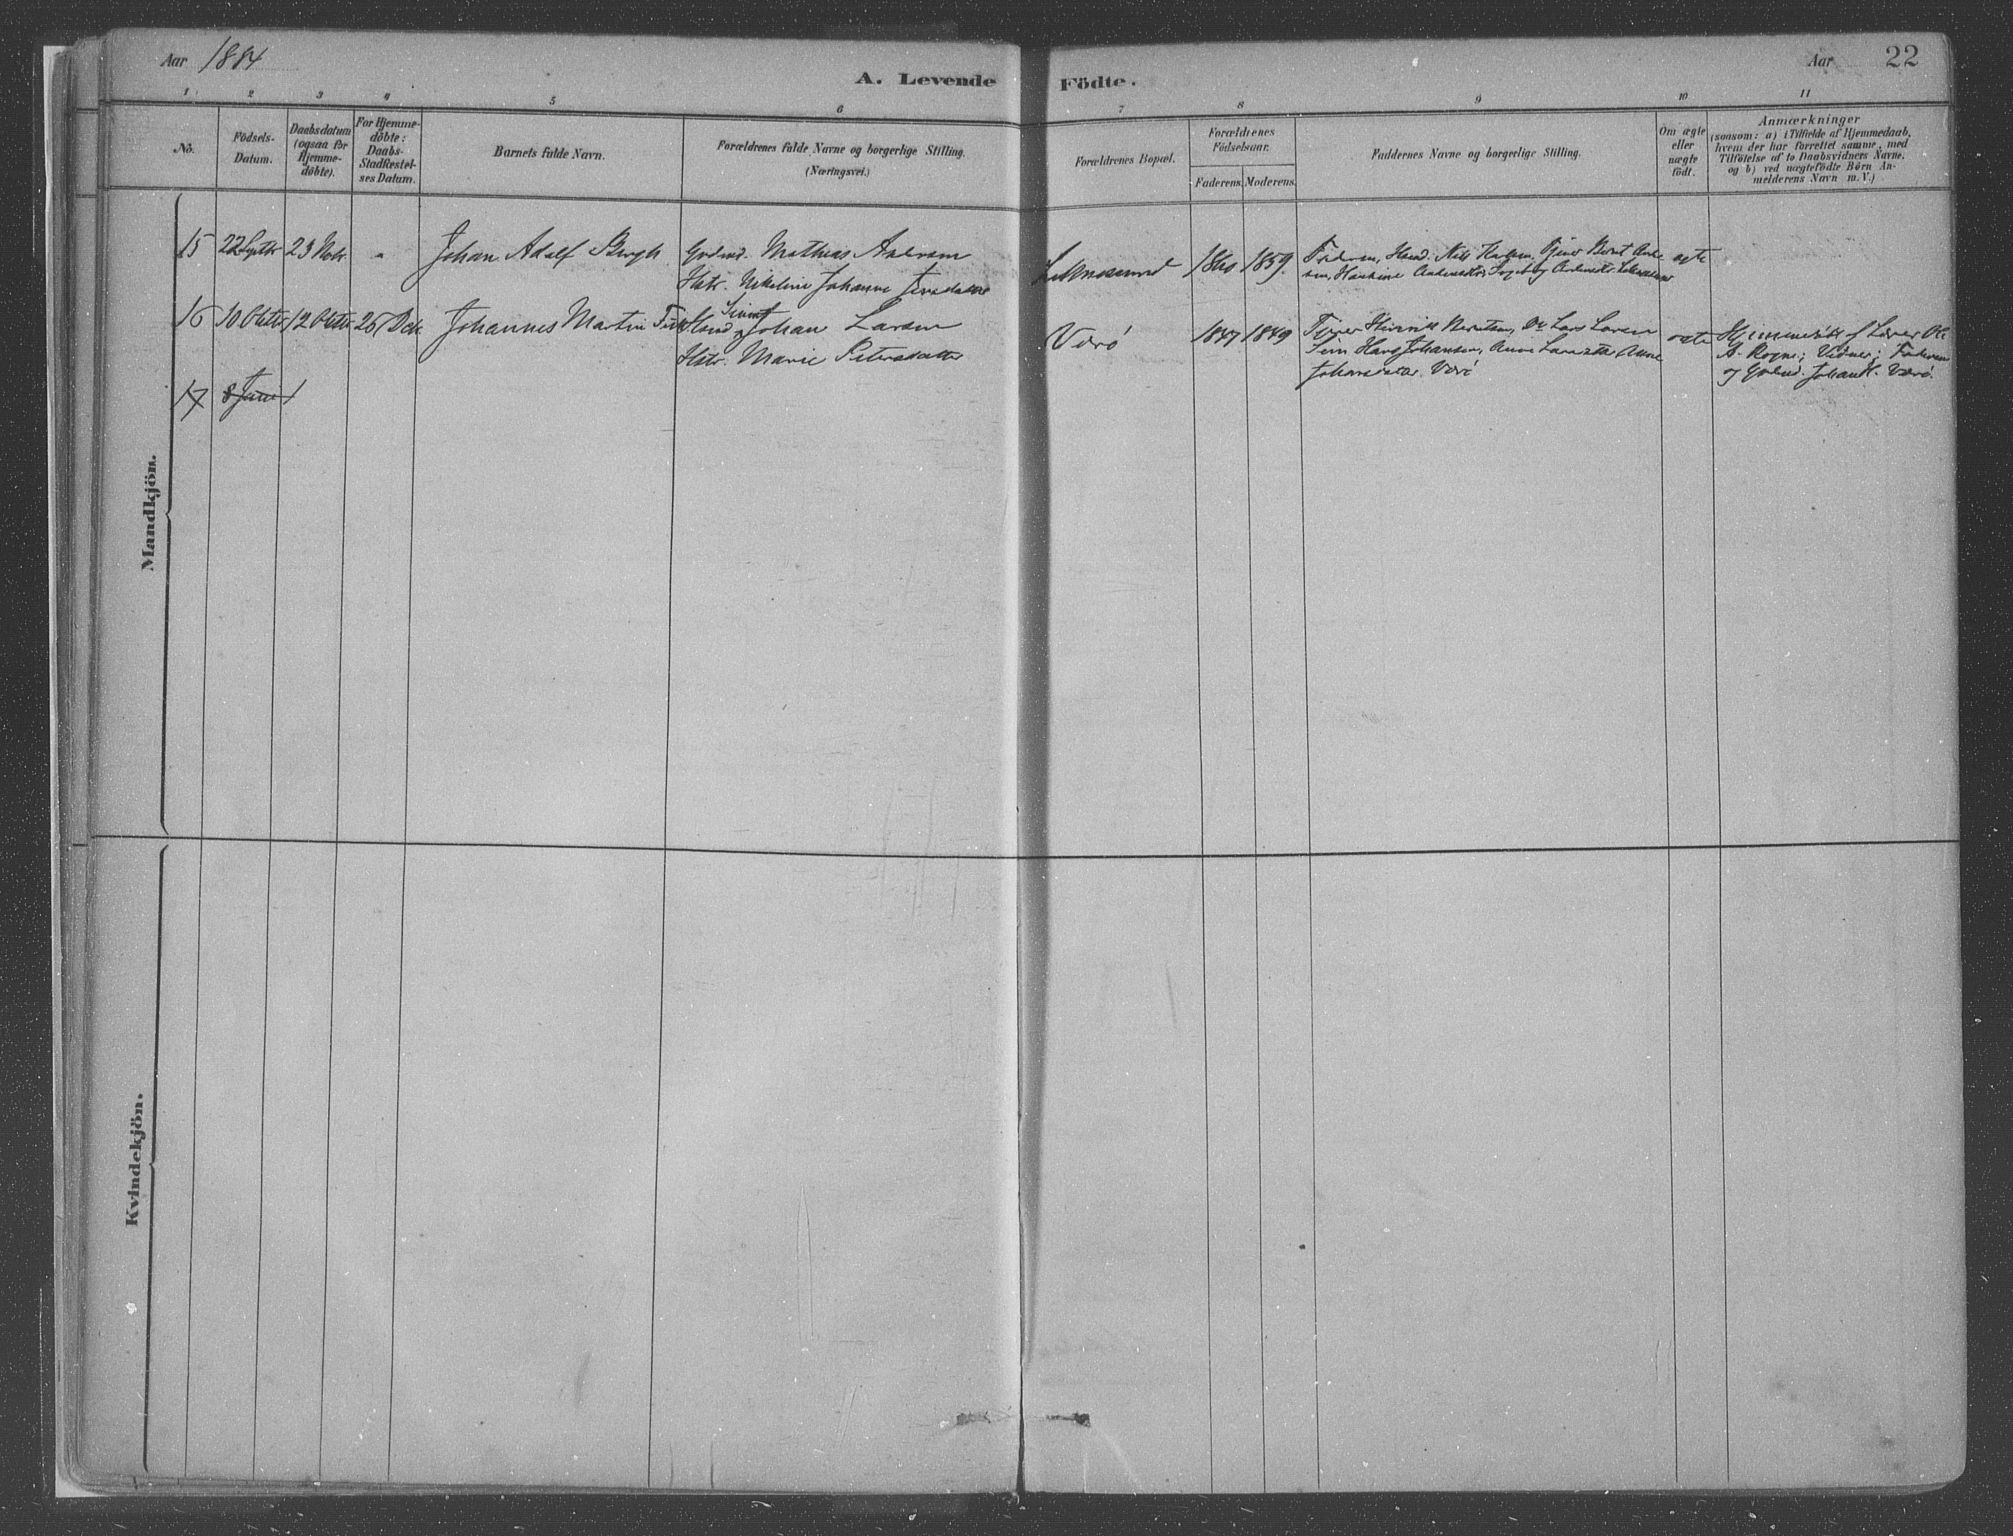 Aar 1884
A. Levende Födte.
Aar 22
1 2 3 4 5 6 7 8 9 10 11
No.
Födsels-
Datum.
Daabsdatum
(ogsaa for
Hjemme-
döbte).
For Hjemme-
döbte:
Daabs-
Stadfæstel-
ses Datum.
Barnets fulde Navn.
Forældrenes fulde Navne og borgerlige Stilling.
(Næringsvei.)
Forældrenes Bopæl.
Forældrenes
Födselsaar.
Faderens. Moderens.
Faddernes Navne og borgerlige Stilling.
Om ægte
eller
uægte
födt.
Anmærkninger
(saasom: a) i Tilfælde af Hjemmedaab,
hvem der har forrettet samme, med
Tilföielse af to Daabsvidners Navne,
og b) ved uægtefödte Börn An-
melderens Navn m. V.)
Mandkjön.
15 22 Septbr 23 Nobr. Johan Adolf Bergh Grdmd. Mathias
Hstr. Nikoline Johanne
1860 1859. Faderen, Nils ægte
16 10 Oktbr 12 Oktbr 26 Dcb Johannes Martin Johan Larsen
Hstr. Marie Petersdatter
Værö 1847 1849 Lars Larsen ægte Hjemmedöbt af Lærer Ole
Hans Johansen, Anne A. Rogne; Vidner; Faderen
Johansdatter. Værö og Johan H. Værö.
17 8 Juni
Kvindekjön.